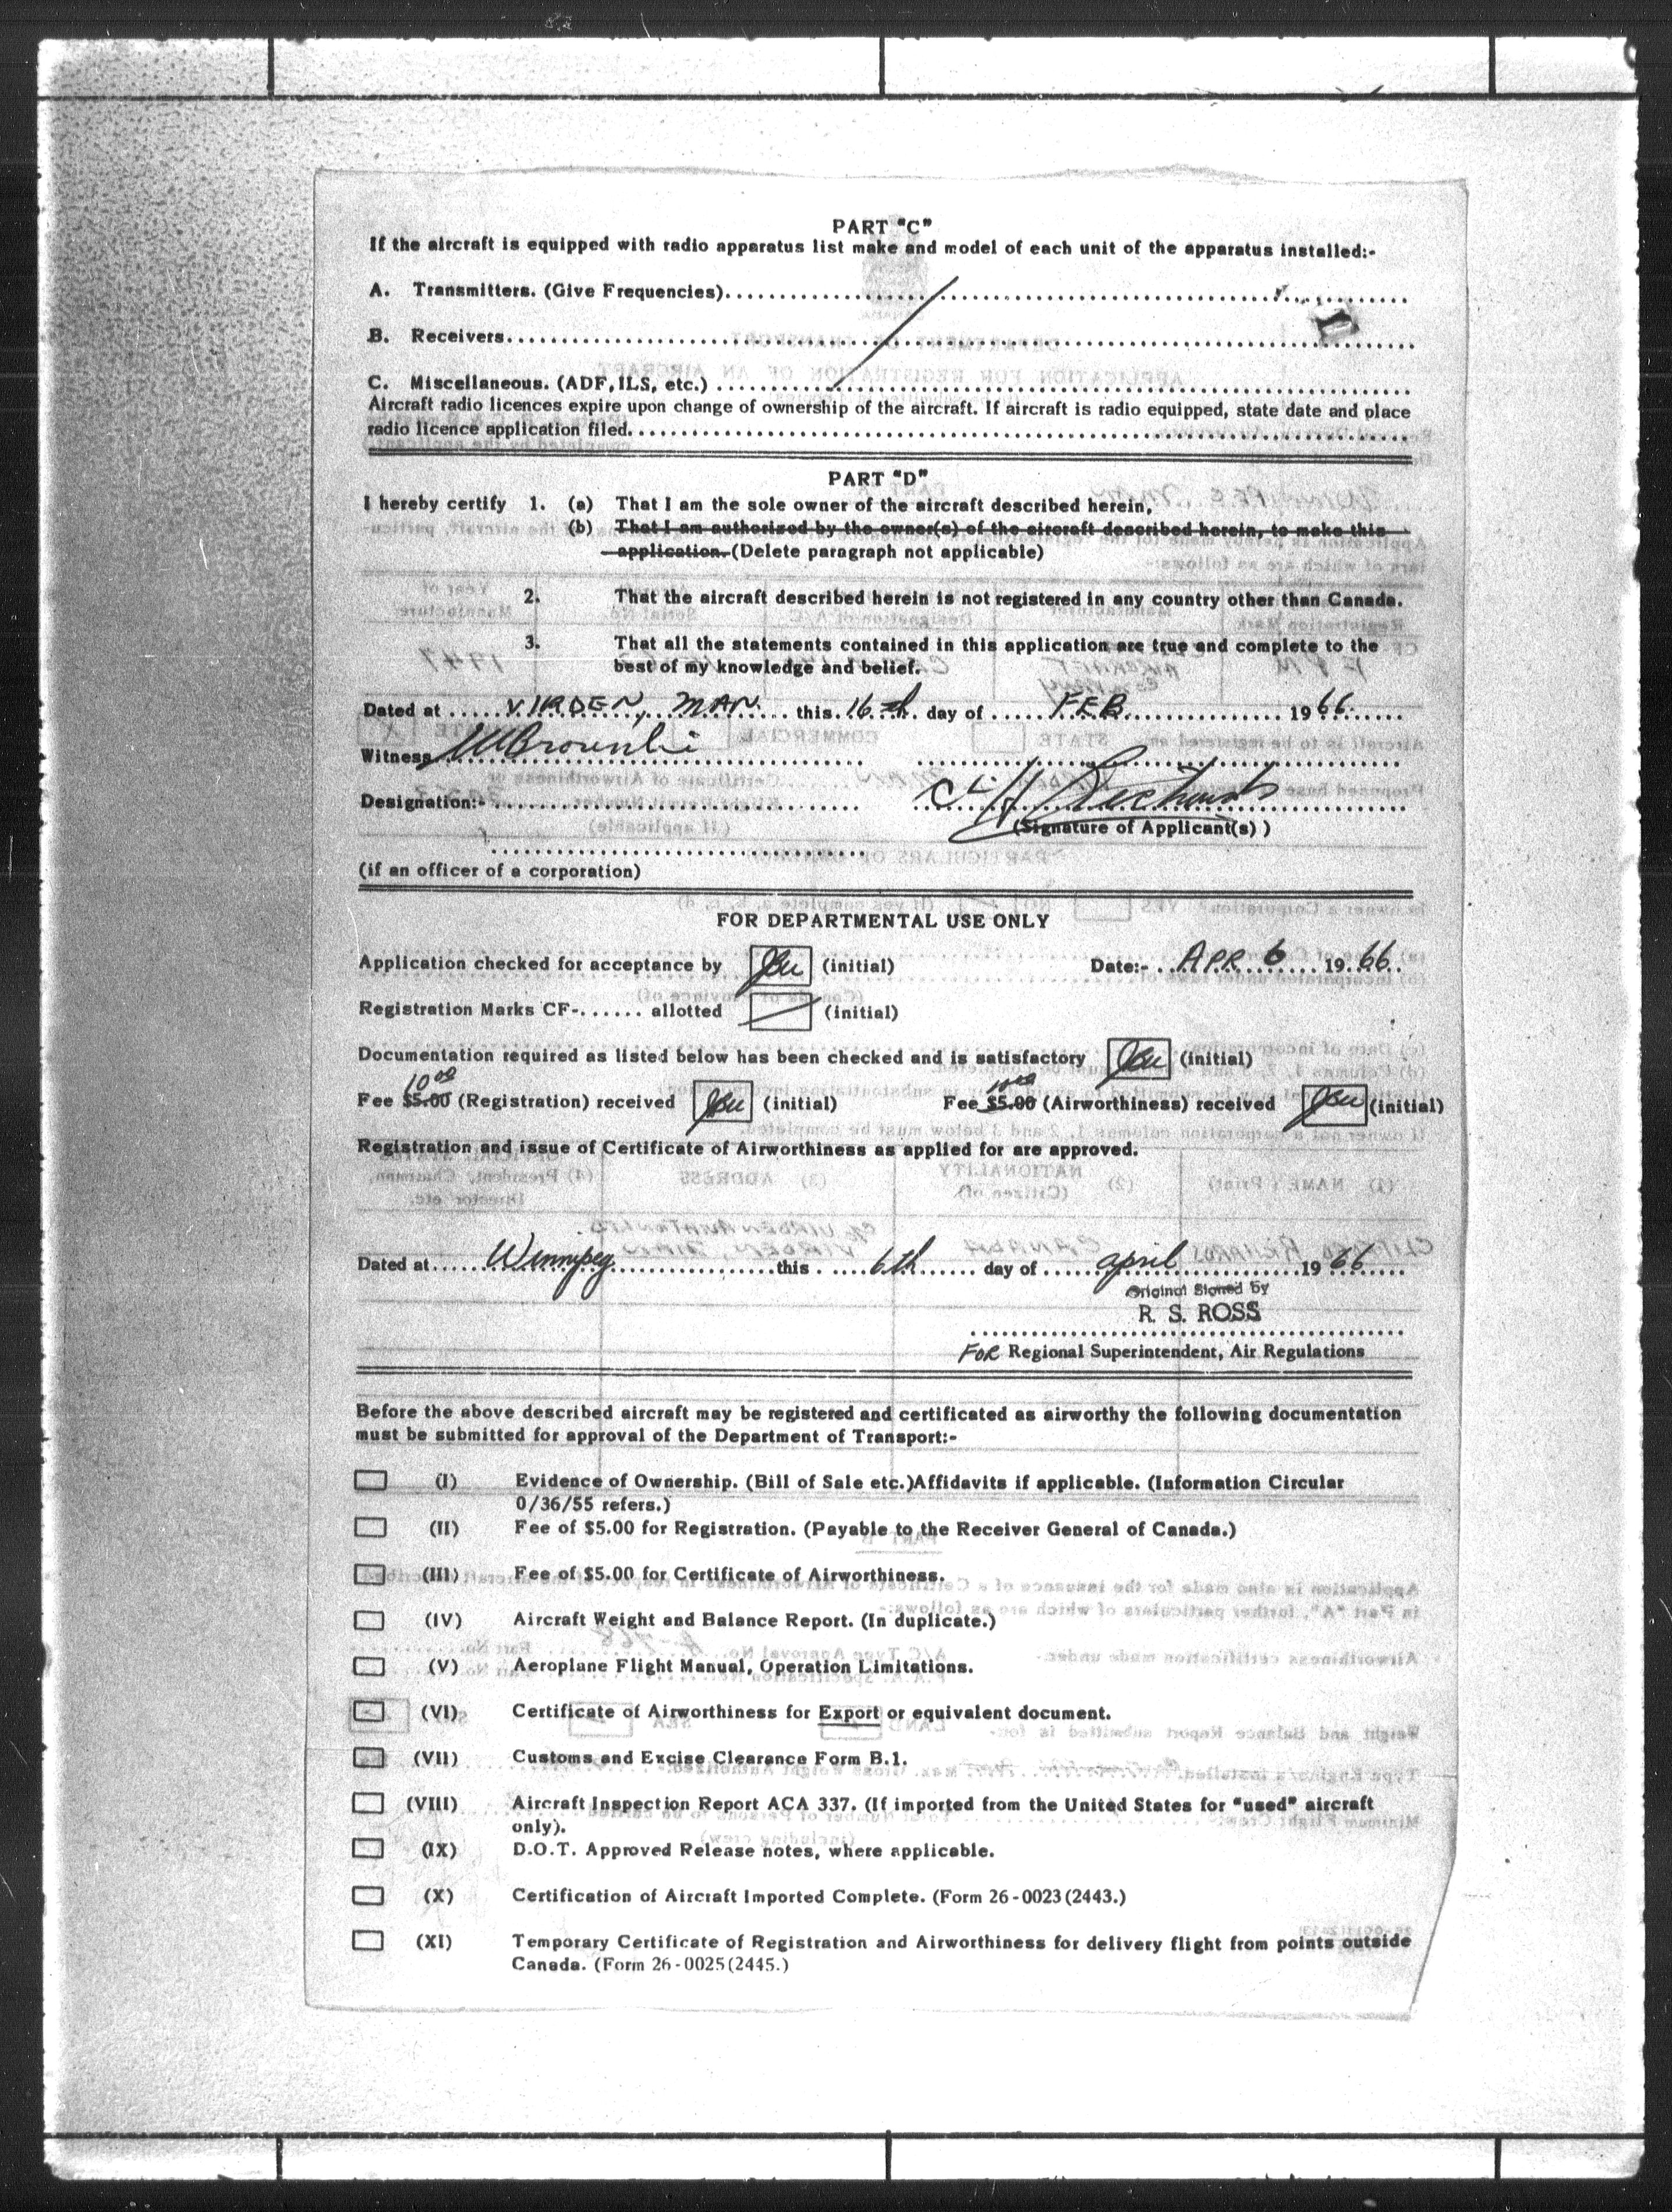 PART "C"
If the aircraft is equipped with radio apparatus list make and model of each unit of the apparatus installed:-
A. Transmitters. (Give Frequencies)
B. Receivers
C. Miscellaneous. (ADF, ILS, etc.)
Aircraft radio licences expire upon change of ownership of the aircraft. If aircraft is radio equipped, state date and place
radio licence application filed.
PART "D"
I hereby certify 1. (a) That I am the sole owner of the aircraft described herein,
(b) That I am authorized by the owner(s) of the aircraft described herein, to make this
application. (Delete paragraph not applicable)
2. That the aircraft described herein is not registered in any country other than Canada.
3. That all the statements contained in this application are true and complete to the
best of my knowledge and belief.
Dated at VIRDEN, MAN. this 16th day of FEB. 1966
Witness
Designation:-
(Signature of Applicant(s) )
(if an officer of a corporation)
FOR DEPARTMENTAL USE ONLY
Application checked for acceptance by (initial) Date:- APR 6 1966
Registration Marks CF-...... allotted (initial)
Documentation required as listed below has been checked and is satisfactory (initial)
10.00 10.00
Fee $5.00 (Registration) received (initial) Fee $5.00 (Airworthiness) received (initial)
Registration and issue of Certificate of Airworthiness as applied for are approved.
Dated at Winnipeg this 6th day of April 1966
Original Signed by
R. S. ROSS
FOR Regional Superintendent, Air Regulations
Before the above described aircraft may be registered and certificated as airworthy the following documentation
must be submitted for approval of the Department of Transport:-
(I) Evidence of Ownership. (Bill of Sale etc.)Affidavits if applicable. (Information Circular
0/36/55 refers.)
(II) Fee of $5.00 for Registration. (Payable to the Receiver General of Canada.)
(III) Fee of $5.00 for Certificate of Airworthiness.
(IV) Aircraft Weight and Balance Report. (In duplicate.)
(V) Aeroplane Flight Manual, Operation Limitations.
(VI) Certificate of Airworthiness for Export or equivalent document.
(VII) Customs and Excise Clearance Form B.1.
(VIII) Aircraft Inspection Report ACA 337. (If imported from the United States for "used" aircraft
only).
(IX) D.O.T. Approved Release notes, where applicable.
(X) Certification of Aircraft Imported Complete. (Form 26-0023(2443.)
(XI) Temporary Certificate of Registration and Airworthiness for delivery flight from points outside
Canada. (Form 26-0025(2445.)